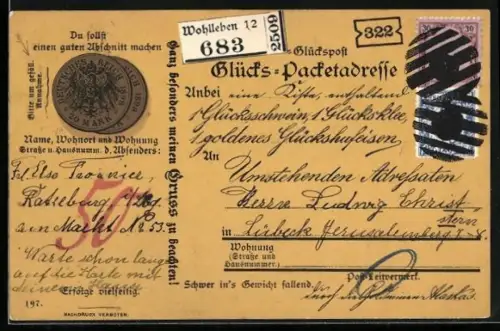 Du sollst
einen guten Abschnitt machen
Bitte um gefäll.
Annahme.
DEUTSCHES REICH 1898
20 MARK
Name, Wohnort und Wohnung
Straße u. Hausnumm. d. Absenders:
Frl. Else
Ratzeburg i/Lbg.
am Markt No 53.
50
Warte schon lange
auf die Karte mit
deinem
Erfolge vielseitig.
197.
NACHDRUCK VERBOTEN.
Ganz besonders meinen Gruss zu beachten!
Wohlleben 12
683
2509
322
Glückspost
Glücks-Packetadresse
Anbei eine Kiste, enthaltend
1 Glücksschwein, 1 Glücksklee,
1 goldenes Glückshufeisen
An
Umstehenden Adressaten
Herrn Ludwig Christ
stern
in Lübeck Jerusalemsberg 7-8.
Wohnung
(Straße und
Hausnummer)
Post-Leitvermerk.
Schwer in's Gewicht fallend.
30